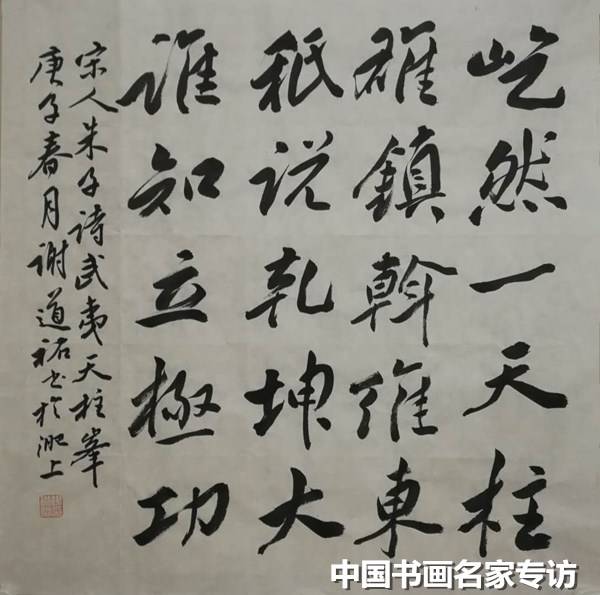 屹然一天柱
雄鎮斡維東
秖说乾坤大
谁知立極功
宋人朱子诗武夷天柱峯
庚子春月谢道祐书於淝上
中国书画名家专访